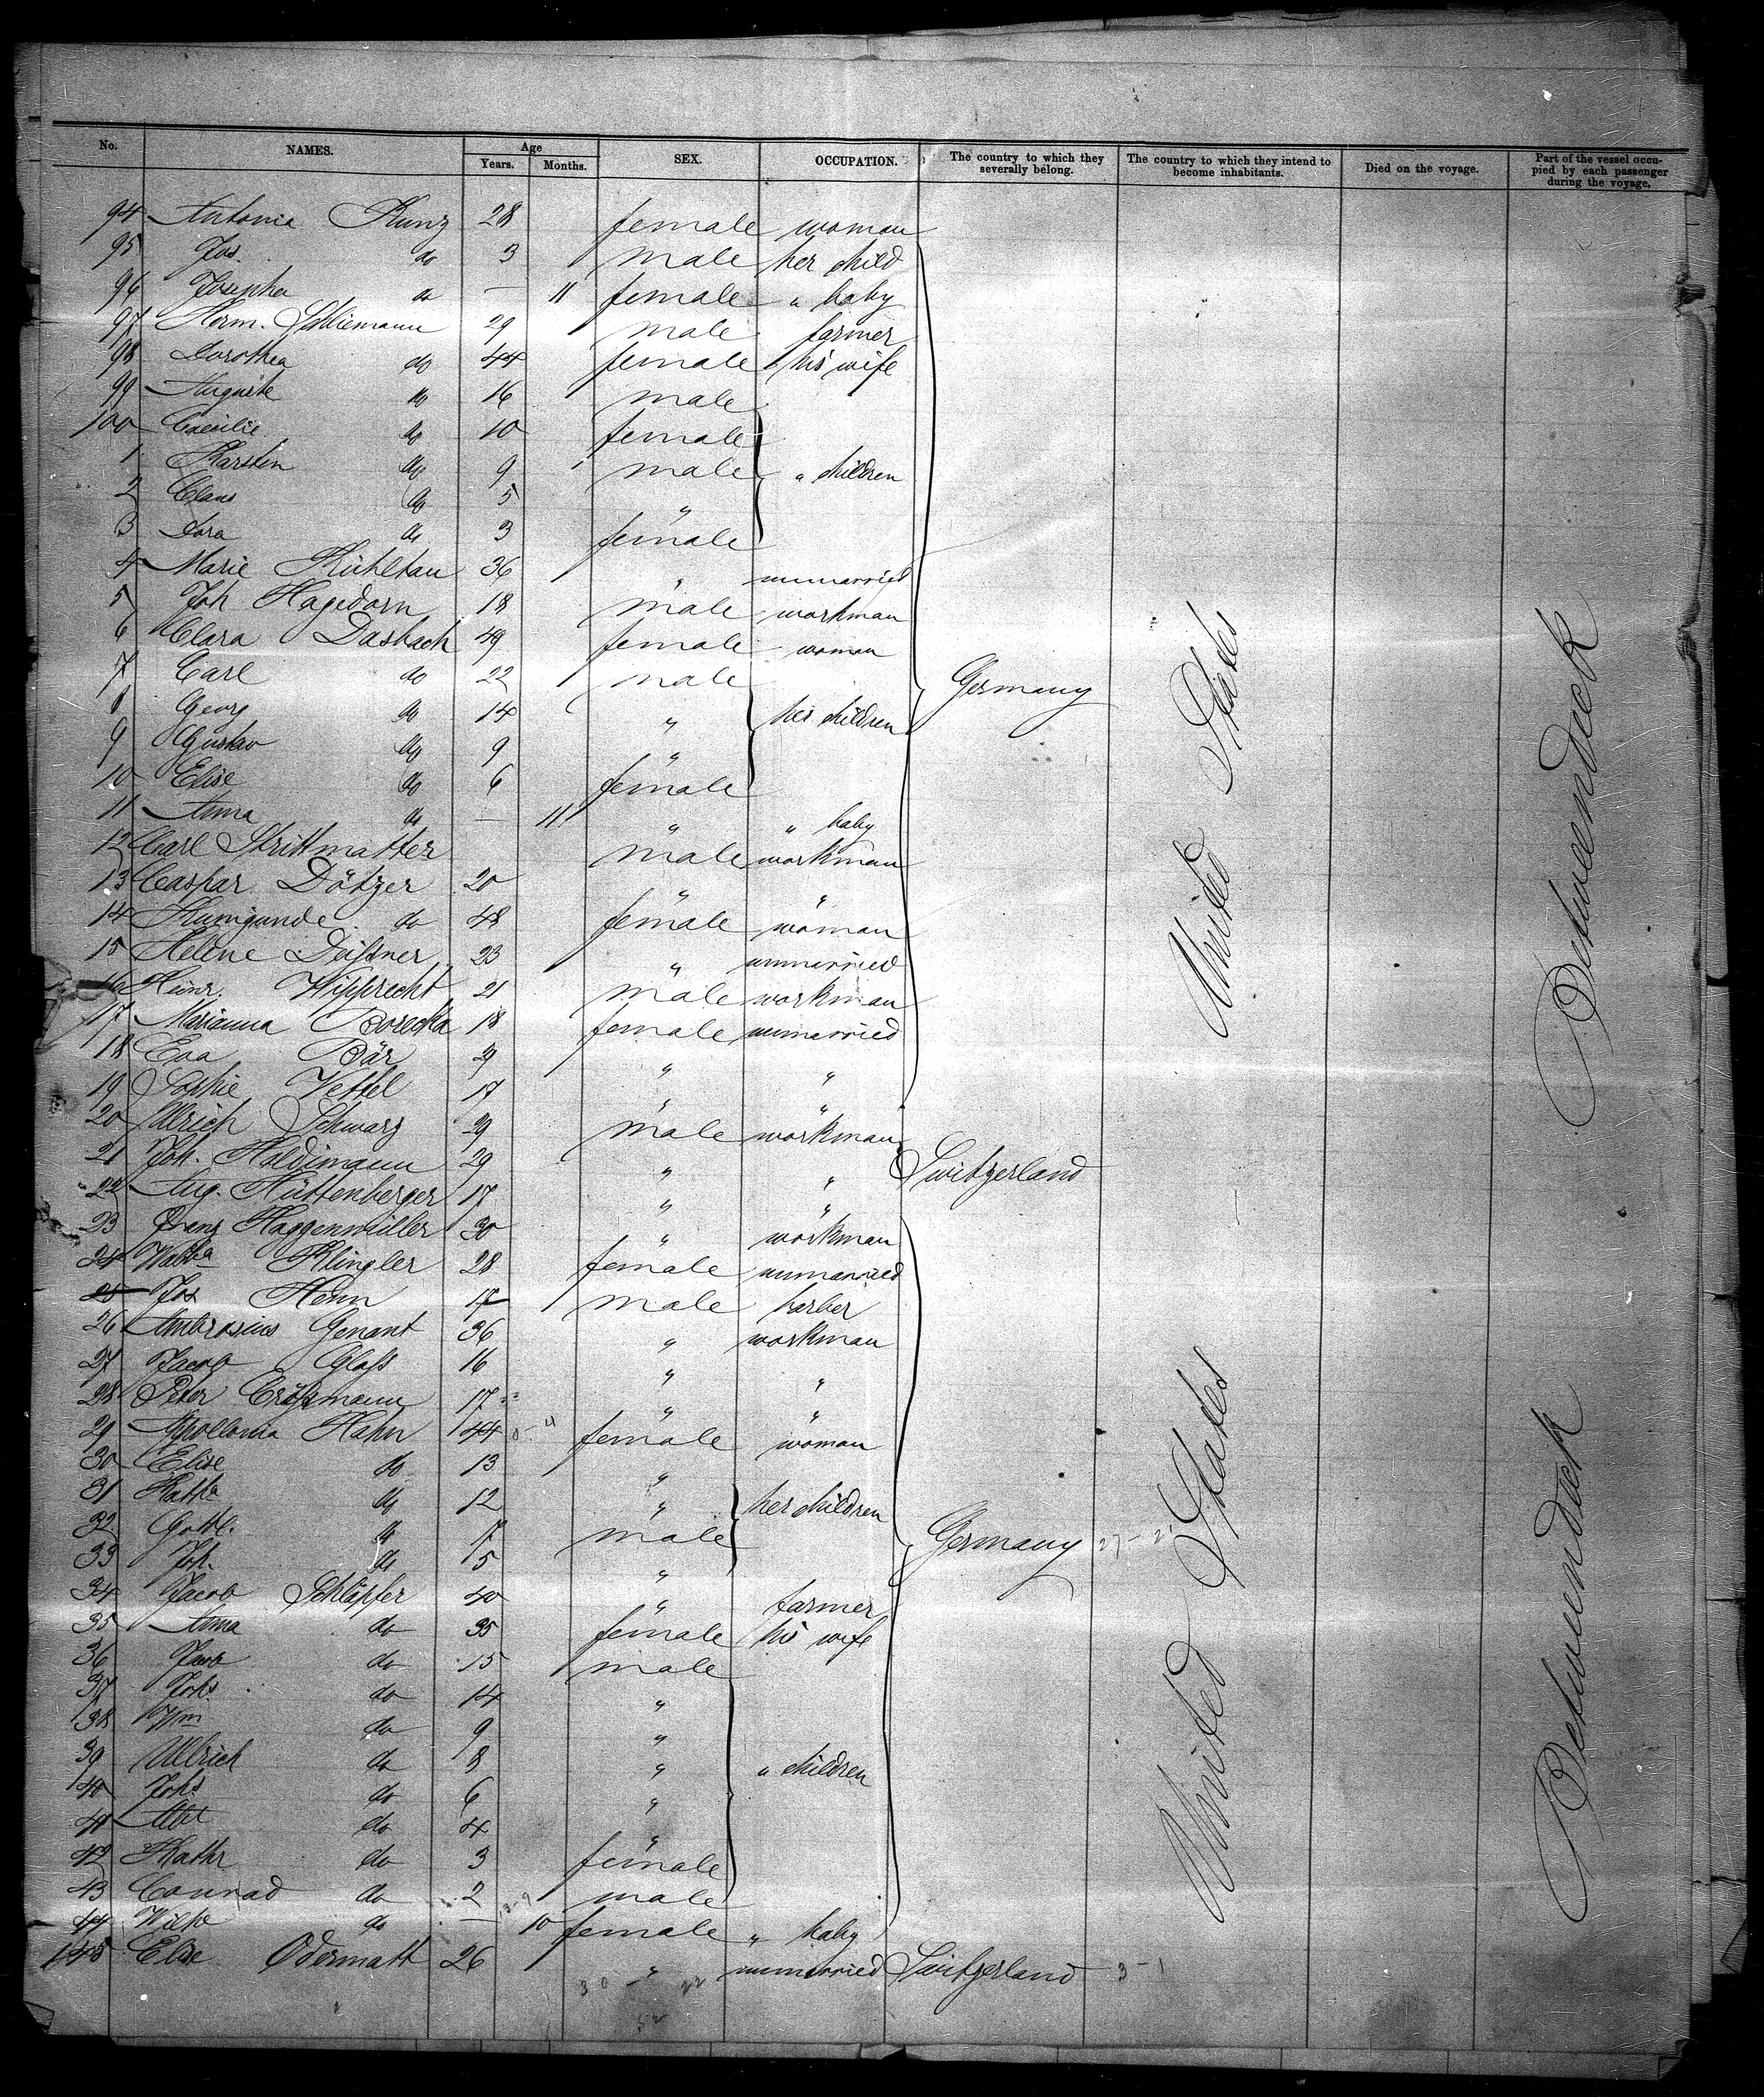 No. NAMES. Age Years. Months. SEX. OCCUPATION. The country to which they severally belong. The country to which they intend to become inhabitants. Died on the voyage. Part of the vessel occupied by each passenger during the voyage.
94 Antonia Kunz 28 female woman
95 Jos. do 3 male her child
96 Josepha do — 11 female " baby
97 Herm. Schliemann 29 male farmer
98 Dorothea do 44 female his wife
99 Auguste do 16 male
100 Caecilie do 10 female
1 Karsten do 9 male " children
2 Claus do 5 "
3 Dora do 3 female
4 Marie Kühltau 36 " unmarried
5 Joh Hagedorn 18 male workman
6 Clara Dasbach 49 female woman
7 Carl do 22 male Germany
8 Georg do 14 " her children
9 Gustav do 9 "
10 Elise do 6 female
11 Anna do — 11 " " baby
12 Carl Strittmatter male workman
13 Caspar Dötzer 20 " "
14 Kunigunde do 48 female woman
15 Helene 23 " unmarried
16 Heinr. Wipprecht 21 male workman
17 Marianna 18 female unmarried
18 Eva Bär 29 " "
19 Sophie Vettel 17 " "
20 Ulrich Schwarz 29 male workman
21 Joh. Haldimann 29 " " Switzerland
22 Aug. Hüttenberger 17 " "
23 Franz Haggenmüller 30 " workman
24 Walb.a Klingler 28 female unmarried
25 Jos Henn 17 male barber
26 Ambrosius Genant 36 " workman
27 Jacob Glass 16 " "
28 Peter 17 " "
29 Apollonia Hahn 44 female woman
30 Elise do 13 "
31 Kath.a do 12 " her children
32 Gottl. do 7 male
33 Joh. do 5 " Germany
34 Jacob Schläpfer 40 " farmer
35 Anna do 35 female his wife
36 Jacob do 15 male
37 Johs. do 14 "
38 Wm do 9 "
39 Ullrich do 8 " " children
40 Johs do 6 "
41 do 4 "
42 Kathr do 3 female
43 Conrad do 2 male
44 do — 10 female " baby
145 Elise Odermatt 26 " unmarried Switzerland 3-1
30 - 22
52
United States
United States
Betweendeck
Betweendeck